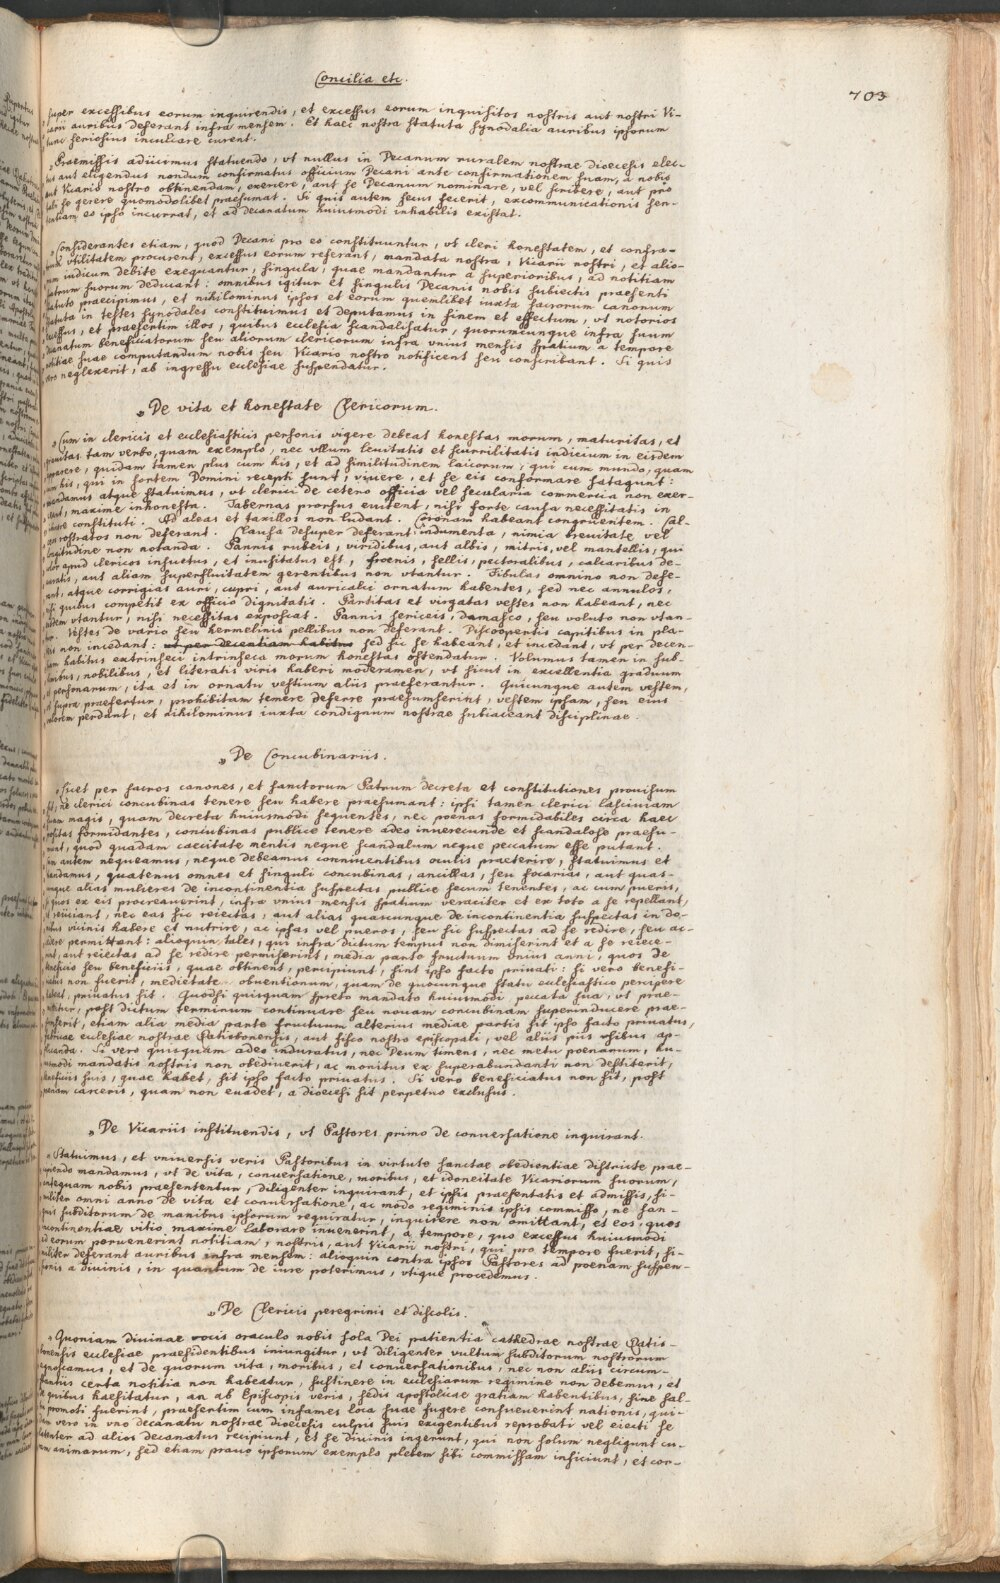 Concilia etc.
703
super excessibus eorum inquirendis, et excessus eorum inquisitos nostris aut nostri Vi-
carii auribus deferant infra mensem. Et haec nostra statuta synodalia auribus ipsorum
tunc seriosius inculcare curent.
„Praemissis adiicimus statuendo, vt nullus in Decanum ruralem nostrae dioecesis elec-
tus aut eligendus nondum confirmatus officium Decani ante confirmationem suam, a nobis
aut Vicario nostro obtinendam, exercere, aut se Decanum nominare, vel scribere, aut pro
tali se gerere quomodolibet praesumat. Si quis autem secus fecerit, excommunicationis sen-
tentiam eo ipso incurrat, et ad decanatum huiusmodi inhabilis existat.
„Considerantes etiam, quod Decani pro eo constituuntur, vt cleri honestatem, et confra-
trum vtilitatem procurent, excessus eorum referant, mandata nostra, Vicarii nostri, et alio-
rum iudicum debite exequantur, singula, quae mandantur a superioribus, ad notitiam
fratrum suorum deducant: omnibus igitur et singulis Decanis nobis subiectis praesenti
statuto praecipimus, et nihilominus ipsos et eorum quemlibet iuxta sacrorum canonum
statuta in testes synodales constituimus et deputamus in finem et effectum, vt notorios
excessus, et praesertim illos, quibus ecclesia scandalisatur, quorumcunque infra suum
decanatum beneficiatorum seu aliorum clericorum infra vnius mensis spatium a tempore
notitiae suae computandum nobis seu Vicario nostro notificent seu conscribant. Si quis
vero neglexerit, ab ingressu ecclesiae suspendatur.
„De vita et honestate Clericorum.
„Cum in clericis et ecclesiasticis personis vigere debeat honestas morum, maturitas, et
grauitas tam verbo, quam exemplo, nec vllum leuitatis et scurrilitatis indicium in eisdem
apparere, quidam tamen plus cum his, et ad similitudinem laicorum, qui cum mundo, quam
cum his, qui in sortem Domini recepti sunt, viuere, et se eis conformare satagunt:
mandamus atque statuimus, vt clerici de cetero officia vel secularia commercia non exer-
ceant, maxime inhonesta. Tabernas prorsus euitent, nisi forte causa necessitatis in
itinere constituti. Ad aleas et taxillos non ludant. Coronam habeant congruentem. Cal-
ceos rostratos non deferant. Clausa desuper deferant indumenta, nimia breuitate vel
longitudine non notanda. Pannis rubeis, viridibus, aut albis, mitris, vel mantellis, qui
color apud clericos insuetus, et inusitatus est, froenis, sellis, pectoralibus, calcaribus de-
auratis, aut aliam superfluitatem gerentibus non vtantur. Fibulas omnino non defe-
rant, atque corrigias auri, cupri, aut auricalci ornatum habentes, sed nec annulos,
nisi quibus competit ex officio dignitatis. Partitas et virgatas vestes non habeant, nec
eisdem vtantur, nisi necessitas exposcat. Pannis sericeis, damasco, seu voluto non vtan-
tur. Vestes de vario seu hermelinis pellibus non deferant. Discoopertis capitibus in pla-
teis non incedant: ut per decentiam habitus sed sic se habeant, et incedant, vt per decen-
tiam habitus extrinseci intrinseca morum honestas ostendatur. Volumus tamen in sub-
limibus, nobilibus, et literatis viris haberi moderamen, vt sicut in excellentia graduum
et personarum, ita et in ornatu vestium aliis praeferantur. Quicunque autem vestem,
vt supra praefertur, prohibitam temere deferre praesumserint, vestem ipsam, seu eius
valorem perdant, et nihilominus iuxta condignum nostrae subiaceant disciplinae.
„De Concubinariis.
„Licet per sacros canones, et sanctorum Patrum decreta et constitutiones prouisum
sit, ne clerici concubinas tenere seu habere praesumant: ipsi tamen clerici lasciuiam
suam magis, quam decreta huiusmodi sequentes, nec poenas formidabiles circa haec
positas formidantes, concubinas publice tenere adeo inuerecunde et scandalose praesu-
munt, quod quadam caecitate mentis neque scandalum neque peccatum esse putant.
Cum autem nequeamus, neque debeamus conniuentibus oculis praeterire, statuimus et
mandamus, quatenus omnes et singuli concubinas, ancillas, seu focarias, aut quas-
cunque alias mulieres de incontinentia suspectas publice secum tenentes, ac cum pueris,
si quos ex eis procreauerint, infra vnius mensis spatium veraciter et ex toto a se repellant,
et reiiciant, nec eas sic reiectas, aut alias quascunque de incontinentia suspectas in do-
mibus vicinis habere et nutrire, ac ipsas vel pueros, seu sic suspectas ad se redire, seu ac-
cedere permittant: alioquin tales, qui infra dictum tempus non dimiserint et a se reiece-
rint, aut reiectas ad se redire permiserint, media parte fructuum vnius anni, quos de
beneficio seu beneficiis, quae obtinent, percipiunt, sint ipso facto priuati: si vero benefi-
ciatus non fuerit, medietate obuentionum, quam de quocunque statu ecclesiastico percipere
habeat, priuatus sit. Quodsi quisquam spreto mandato huiusmodi peccata sua, vt prae-
mittitur, post dictum terminum continuare seu nouam concubinam superinducere prae-
sumserit, etiam alia media parte fructuum alterius mediae partis sit ipso facto priuatus,
fabricae ecclesiae nostrae Ratisbonensis, aut fisco nostro episcopali, vel aliis piis vsibus ap-
plicanda. Si vero quisquam adeo induratus, nec Deum timens, nec metu poenarum, hu-
iusmodi mandatis nostris non obediuerit, ac monitus ex superabundanti non destiterit,
beneficiis suis, quae habet, sit ipso facto priuatus. Si vero beneficiatus non sit, post
poenam carceris, quam non euadet, a dioecesi sit perpetuo exclusus.
„De Vicariis instituendis, vt Pastores primo de conuersatione inquirant.
„Statuimus, et vniuersis veris Pastoribus in virtute sanctae obedientiae districte prae-
cipiendo mandamus, vt de vita, conuersatione, moribus, et idoneitate Vicariorum suorum,
antequam nobis praesententur, diligenter inquirant, et ipsis praesentatis et admissis, si-
militer omni anno de vita et conuersatione, ac modo regiminis ipsis commisso, ne san-
guis subditorum de manibus ipsorum requiratur, inquirere non omittant, et eos, quos
incontinentiae vitio maxime laborare inuenerint, a tempore, quo excessus huiusmodi
ad eorum peruenerint notitiam, nostris, aut Vicarii nostri, qui pro tempore fuerit, si-
militer deferant auribus infra mensem: alioquin contra ipsos Pastores ad poenam suspen-
sionis a diuinis, in quantum de iure poterimus, vtique procedemus.
„De Clericis peregrinis et discolis.
„Quoniam diuinae vocis oraculo nobis sola Dei patientia cathedrae nostrae Ratis-
bonensis ecclesiae praesidentibus iniungitur, vt diligenter vultum subditorum nostrorum
agnoscamus, et de quorum vita, moribus, et conuersationibus, nec non aliis circum-
stantiis certa notitia non habeatur, sustinere in ecclesiarum regimine non debemus, et
de quibus haesitatur, an ab Episcopis veris, sedis apostolicae gratiam habentibus, sine fal-
so promoti fuerint, praesertim cum infames loca suae fugere consueuerint nationis, qui-
dam vero in vno decanatu nostrae dioecesis culpis suis exigentibus reprobati vel eiecti se
latenter ad alios decanatus recipiunt, et se diuinis ingerunt, qui non solum negligunt cu-
ram animarum, sed etiam prauo ipsorum exemplo plebem sibi commissam inficiunt, et cor-